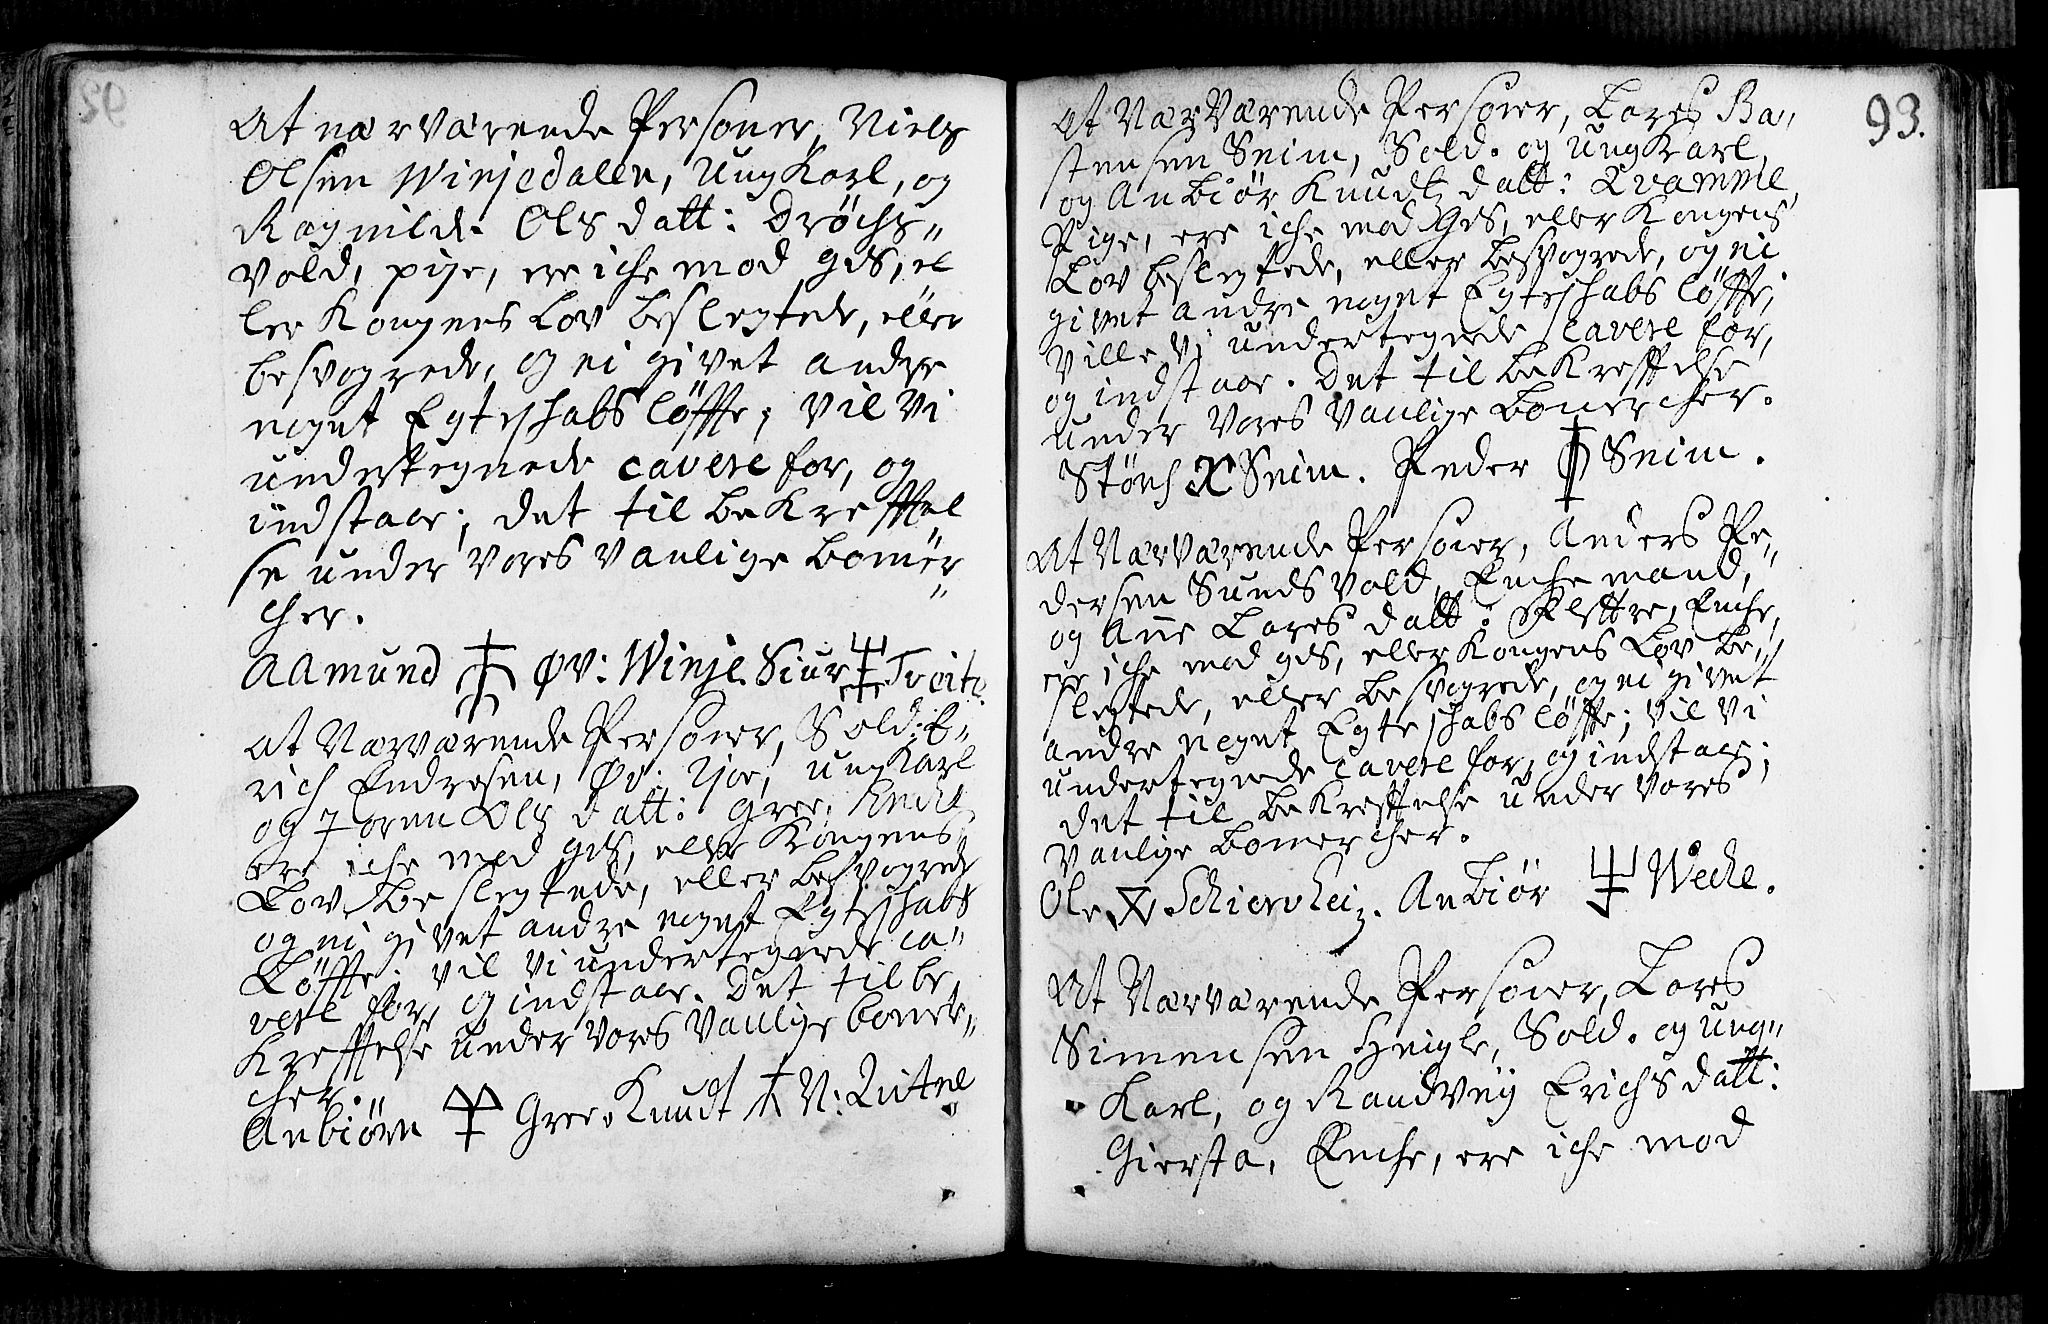 At nærværende Personer, Niels
Olsen Winjedalen, Ung Karl, og
Ragnild Ols datt: Dröchs„
vold, pige, ere iche mod Gds, el
ler Kongens Lov beslegtede, eller
besvogrede, og ei givet andre
noget Egteschabs löffte; vil vi
undertegnede cavere for, og
indstaae; det til bekrefftel
se under vores vanlige bomer„
cher.
Aamund Øv: Winje Siur Tveite
At Nærværende Persover, Sold: E„
rich Endresen, Øv. Ljoe, ung Karl
og Joren Ols datt: Gree, Enche
ere iche mod gds, eller Kongens
Lov beslegtede, eller besvogrede
og ei givet andre noget Egteschabs
Löffte; vil vi undertegnede ca„
vere for, og indstaae. Det til be
krefftelse under vores vanlige bomer„
cher.
Anbiörn Gree. Knudt N: Qvitne
93.
At Nærværende Persover, Lares Ba,
stensen Seim, Sold. og ung Karl,
og Anbiör Knudtz datt: Qvamme,
Pige, ere iche mod Gds, eller Kongens
Lov beslegtede, eller besvogrede, og ei
givet andre noget Egteschabs löffte;
ville vi undertegnede cavere for,
og indstaae. Det til bekrefftelse
under vores vanlige bomercher.
Störch Seim. Peder Seim.
At Nærværende Persover, Anders Pe„
dersen Sundsvold, Enchemand,
og Ane Lares datt: Flettre, Enche,
ere iche mod gds, eller Kongens Lov be„
slegtede, eller besvogrede, og ei givet
andre noget Egteschabs löffte; vil vi
undertegnede cavere for, og indstaae;
det til bekrefftelse under vores
vanlige bomercher.
Ole Schierv heiz. Anbiör Weche.
At Nærværende Persover, Lares
Simensen Heigle, Sold. og ung„
Karl, og Randveij Erichs datt:
Giersta, Enche, ere iche mod